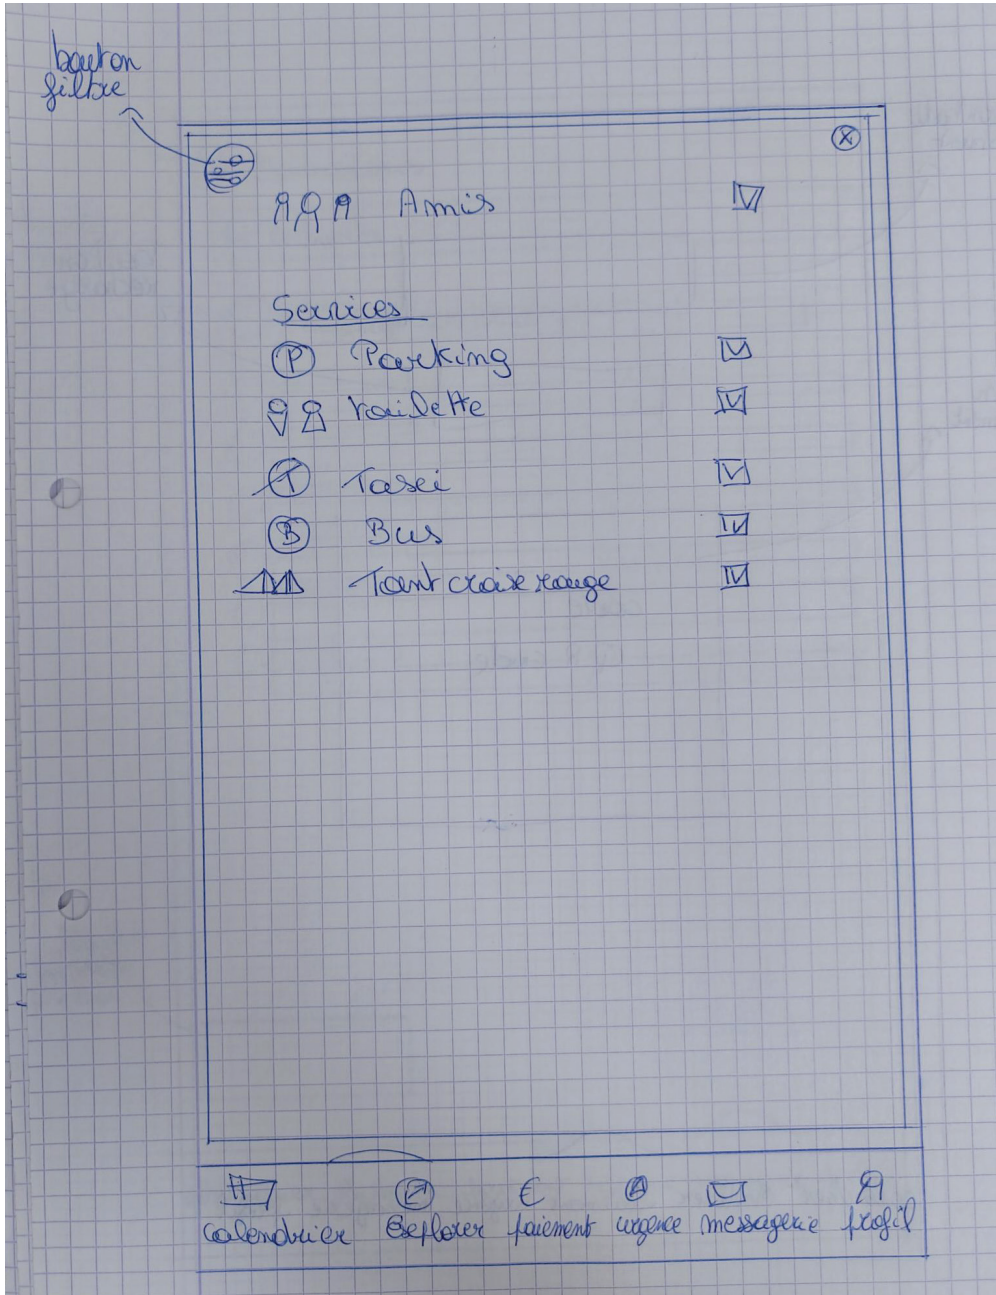 bouton
filtre
X
Amis
Services
P Parking
toilette
T Taxi
B Bus
Tant croix rouge
calendrier Explorer paiement urgence messagerie profil